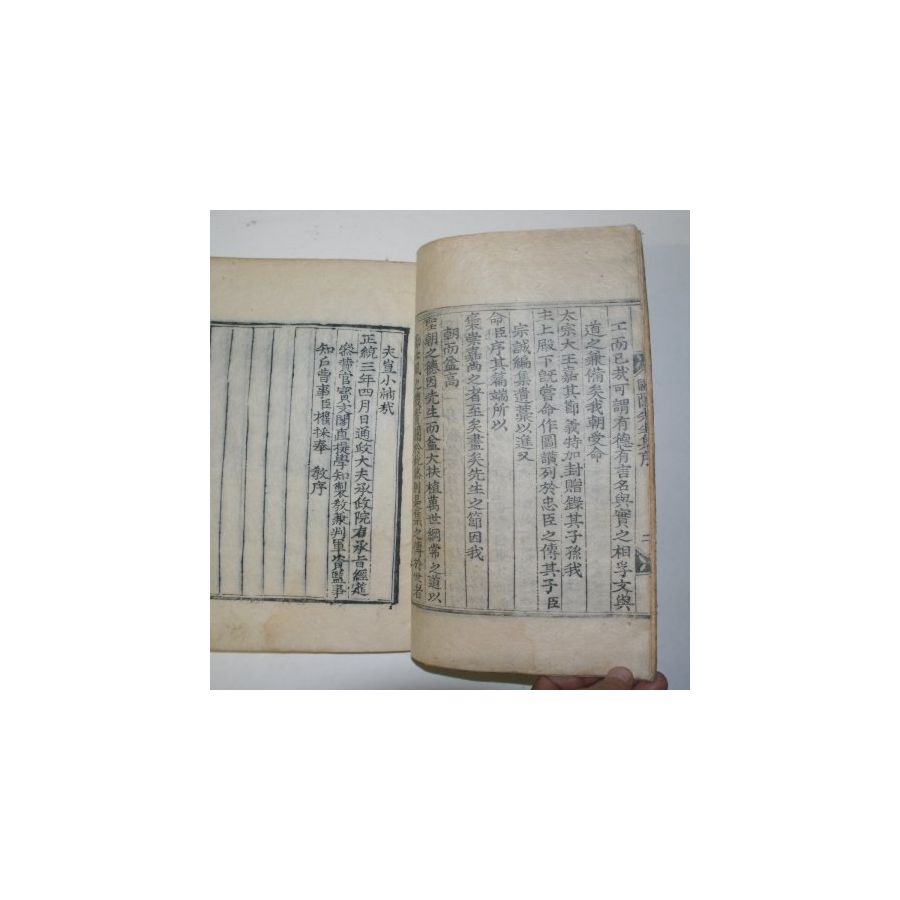 圃隱先生集序 二
工而已哉可謂有德有言名與實之相孚文與
道之兼備矣我朝受命
太宗大王嘉其節義特加封贈錄其子孫我
主上殿下旣嘗命作圖讚列於忠臣之傳其子臣
宗誠編集遺藁以進又
命臣序其篇端所以
褒崇嘉尚之者至矣盡矣先生之節因我
朝而益高
聖朝之德因先生而益大扶植萬世綱常之道以
之傳於世者
夫豈小補哉
正統三年四月日通政大夫承政院右承旨經筵
叅贊官寶文閣直提學知製敎兼判軍資監事
知戶曹事臣權採奉 敎序